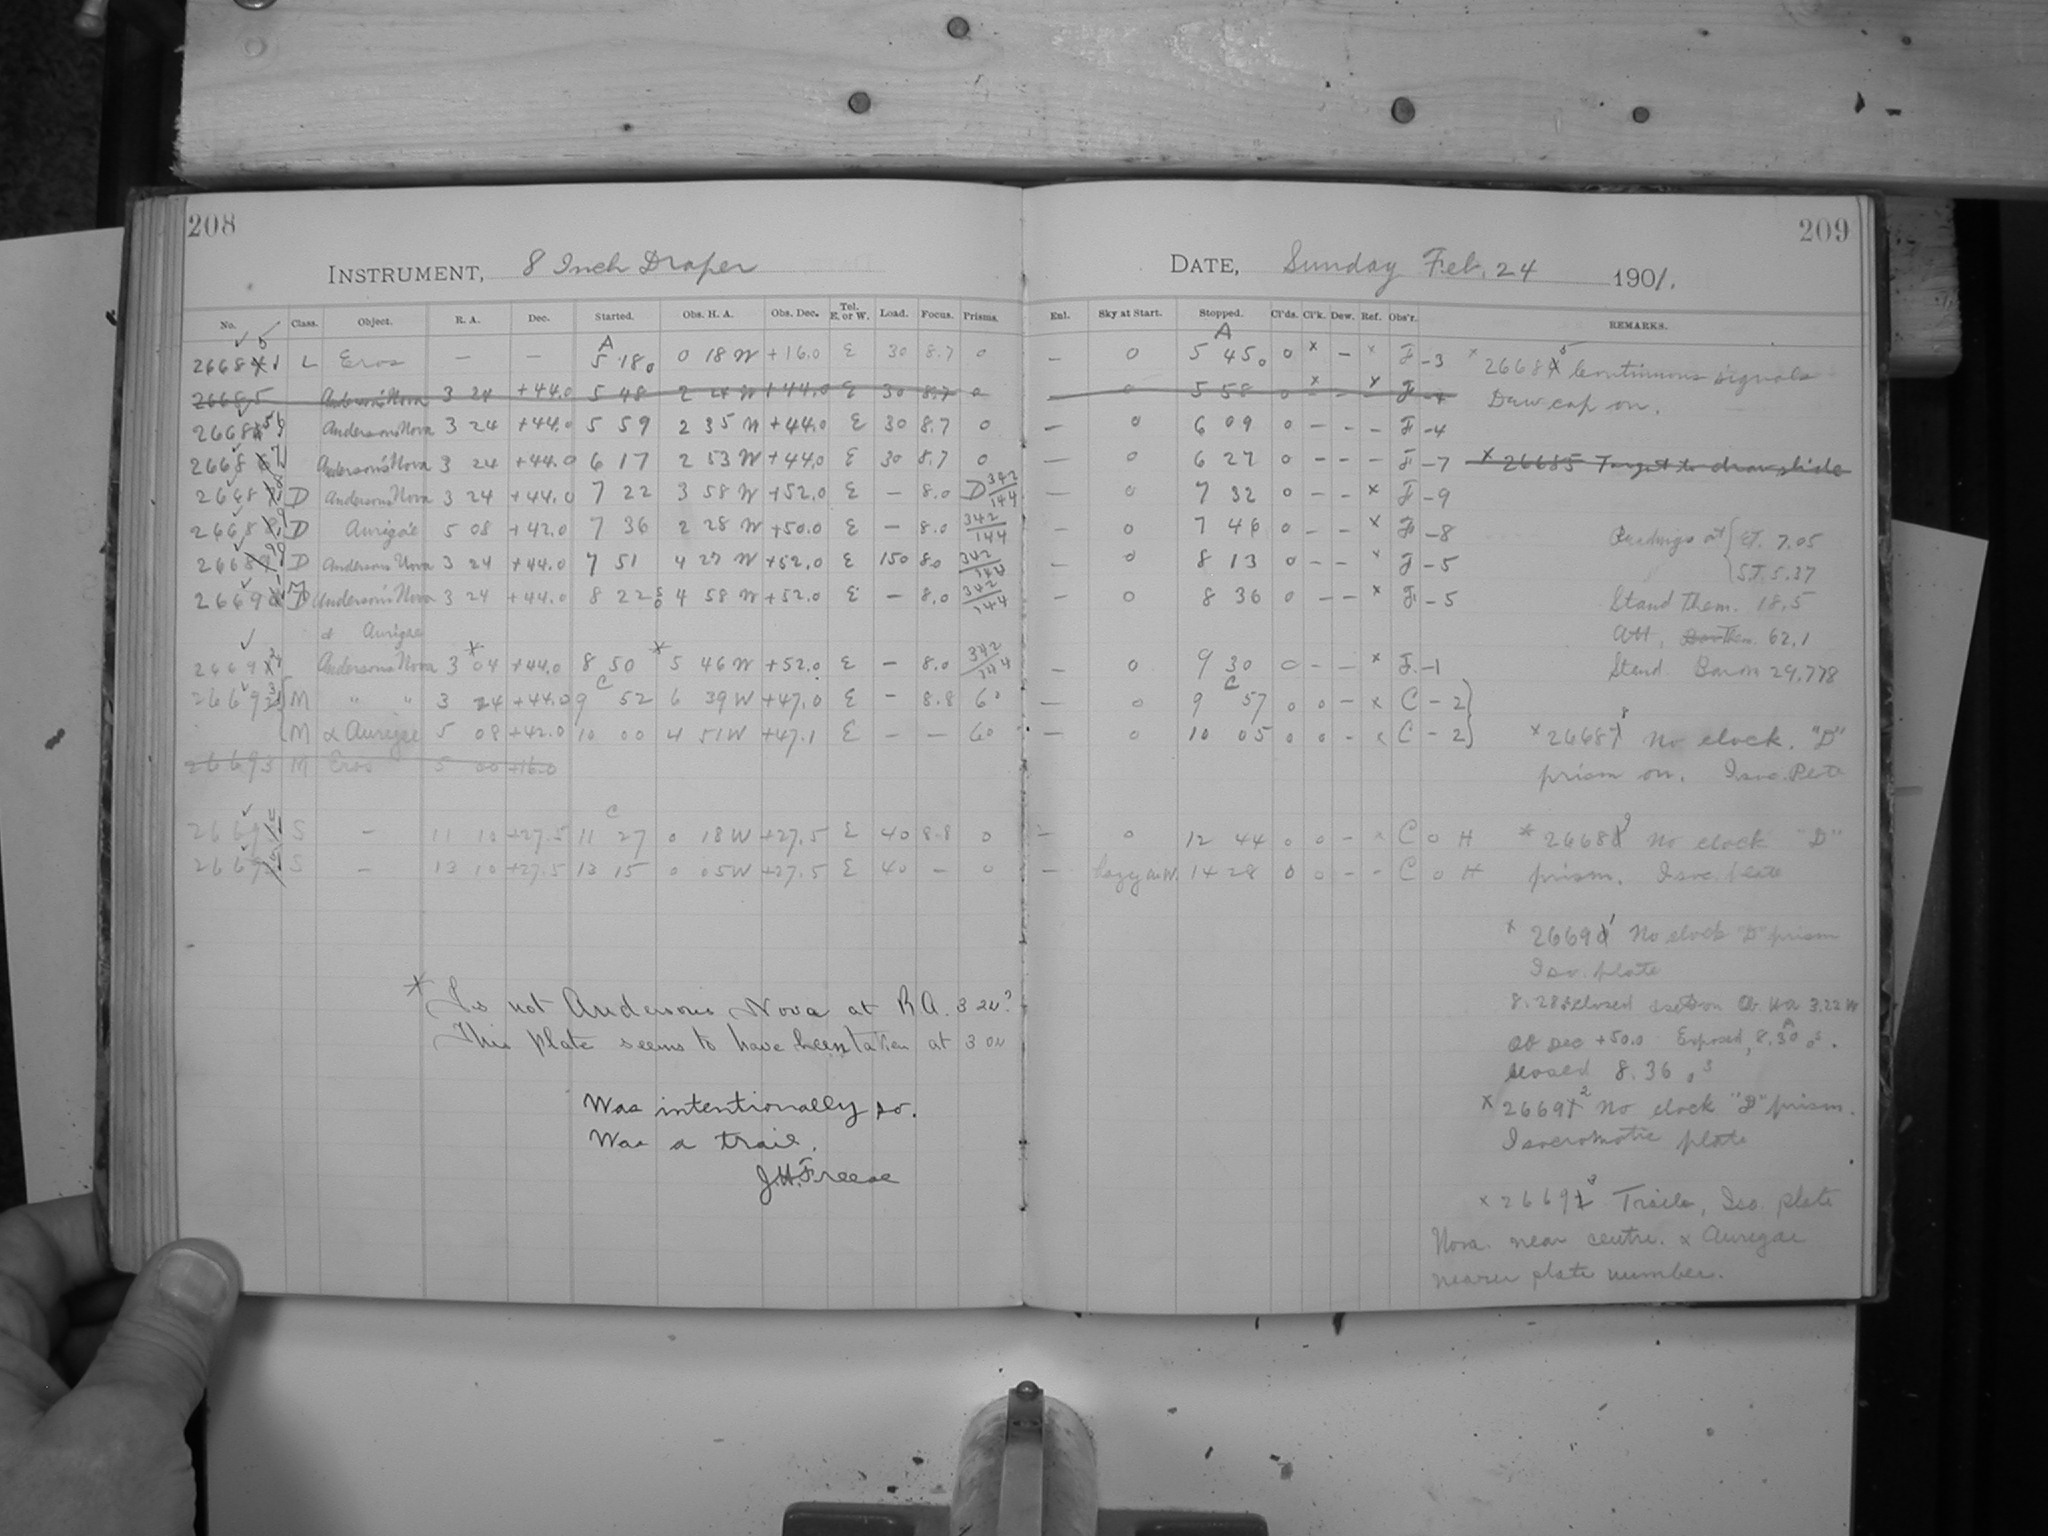 208
INSTRUMENT, 8 Inch Draper
No. Class. Object. R. A. Dec. Started. Obs. H. A. Obs. Dec. Tel. E. or W. Load. Focus. Prisms.
L Eros — — A 5 18 0 0 18 W +16.0 E 30 8.7 0
26685 Anderson's Nova 3 24 +44.0 5 48 2 24 W +44.0 E 30 8.7 0
Andersons Nova 3 24 +44.0 5 59 2 35 W +44.0 E 30 8.7 0
Anderson's Nova 3 24 +44.0 6 17 2 53 W +44.0 E 30 8.7 0
D Andersons Nova 3 24 +44.0 7 22 3 58 W +52.0 E — 8.0 D 342/144
D Aurigae 5 08 +42.0 7 36 2 28 W +50.0 E — 8.0 342/144
D Andersons Nova 3 24 +44.0 7 51 4 27 W +52.0 E 150 8.0 342/144
Anderson's Nova 3 24 +44.0 8 22 4 58 W +52.0 E — 8.0 342/144
Aurigae
Andersons Nova 3 *04 +44.0 8 50 * 5 46 W +52.0 E — 8.0 342/144
M " " 3 24 +44.0 C 9 52 6 39 W +47.0 E — 8.8 60
M α Aurigae 5 08 +42.0 10 00 4 51 W +47.1 E — — 60
26693 M Eros 5 00 +16.0
S — 11 10 +27.5 C 11 27 0 18 W +27.5 E 40 8.8 0
S — 13 10 +27.5 13 15 0 05 W +27.5 E 40 — 0
* Is not Andersons Nova at R.A. 3 24?
This plate seems to have been taken at 3 04
Was intentionally so.
Was a trail.
J.H.Freese
209
DATE, Sunday Feb. 24 1901.
Enl. Sky at Start. Stopped. Cl'ds. Cl'k. Dew. Ref. Obs'r. REMARKS.
— 0 A 5 45 0 0 x — x F -3
— 0 5 58 0 x — x F -4
— 0 6 09 0 — — — F -4
— 0 6 27 0 — — — F -7
— 0 7 32 0 — — x F -9
— 0 7 46 0 — — x F -8
— 0 8 13 0 — — x F -5
— 0 8 36 0 — — x F -5
— 0 9 30 0 — — x F -1
— 0 C 9 57 0 0 — x C - 2
— 0 10 05 0 0 — x C - 2
— 0 12 44 0 0 — C 0 H
— hazy in W. 14 28 0 0 — — C 0 H
x 26685 Continuous signals
Dew cap on.
x 26685 Forgot to draw slide
Readings at E.T. 7.05
S.T. 5.37
Stand Them. 18.5
Att. Them. 62.1
Stand Barom 29.778
x 26688 No clock. "D"
prism on. Iso. Plate
* 26689 No clock "D"
prism. Iso. plate
x 26691 No clock "D" prism
Iso. plate
8.28 closed set on Ob. HA 3.22 W
Ob Dec +50.0 Exposed A 8.30 0s.
closed 8.36 0s
x 26692 No clock "D" prism.
Isocromatic plate
x 26693 Trails, Iso. plate
Nova near centre. α Aurigae
nearer plate number.